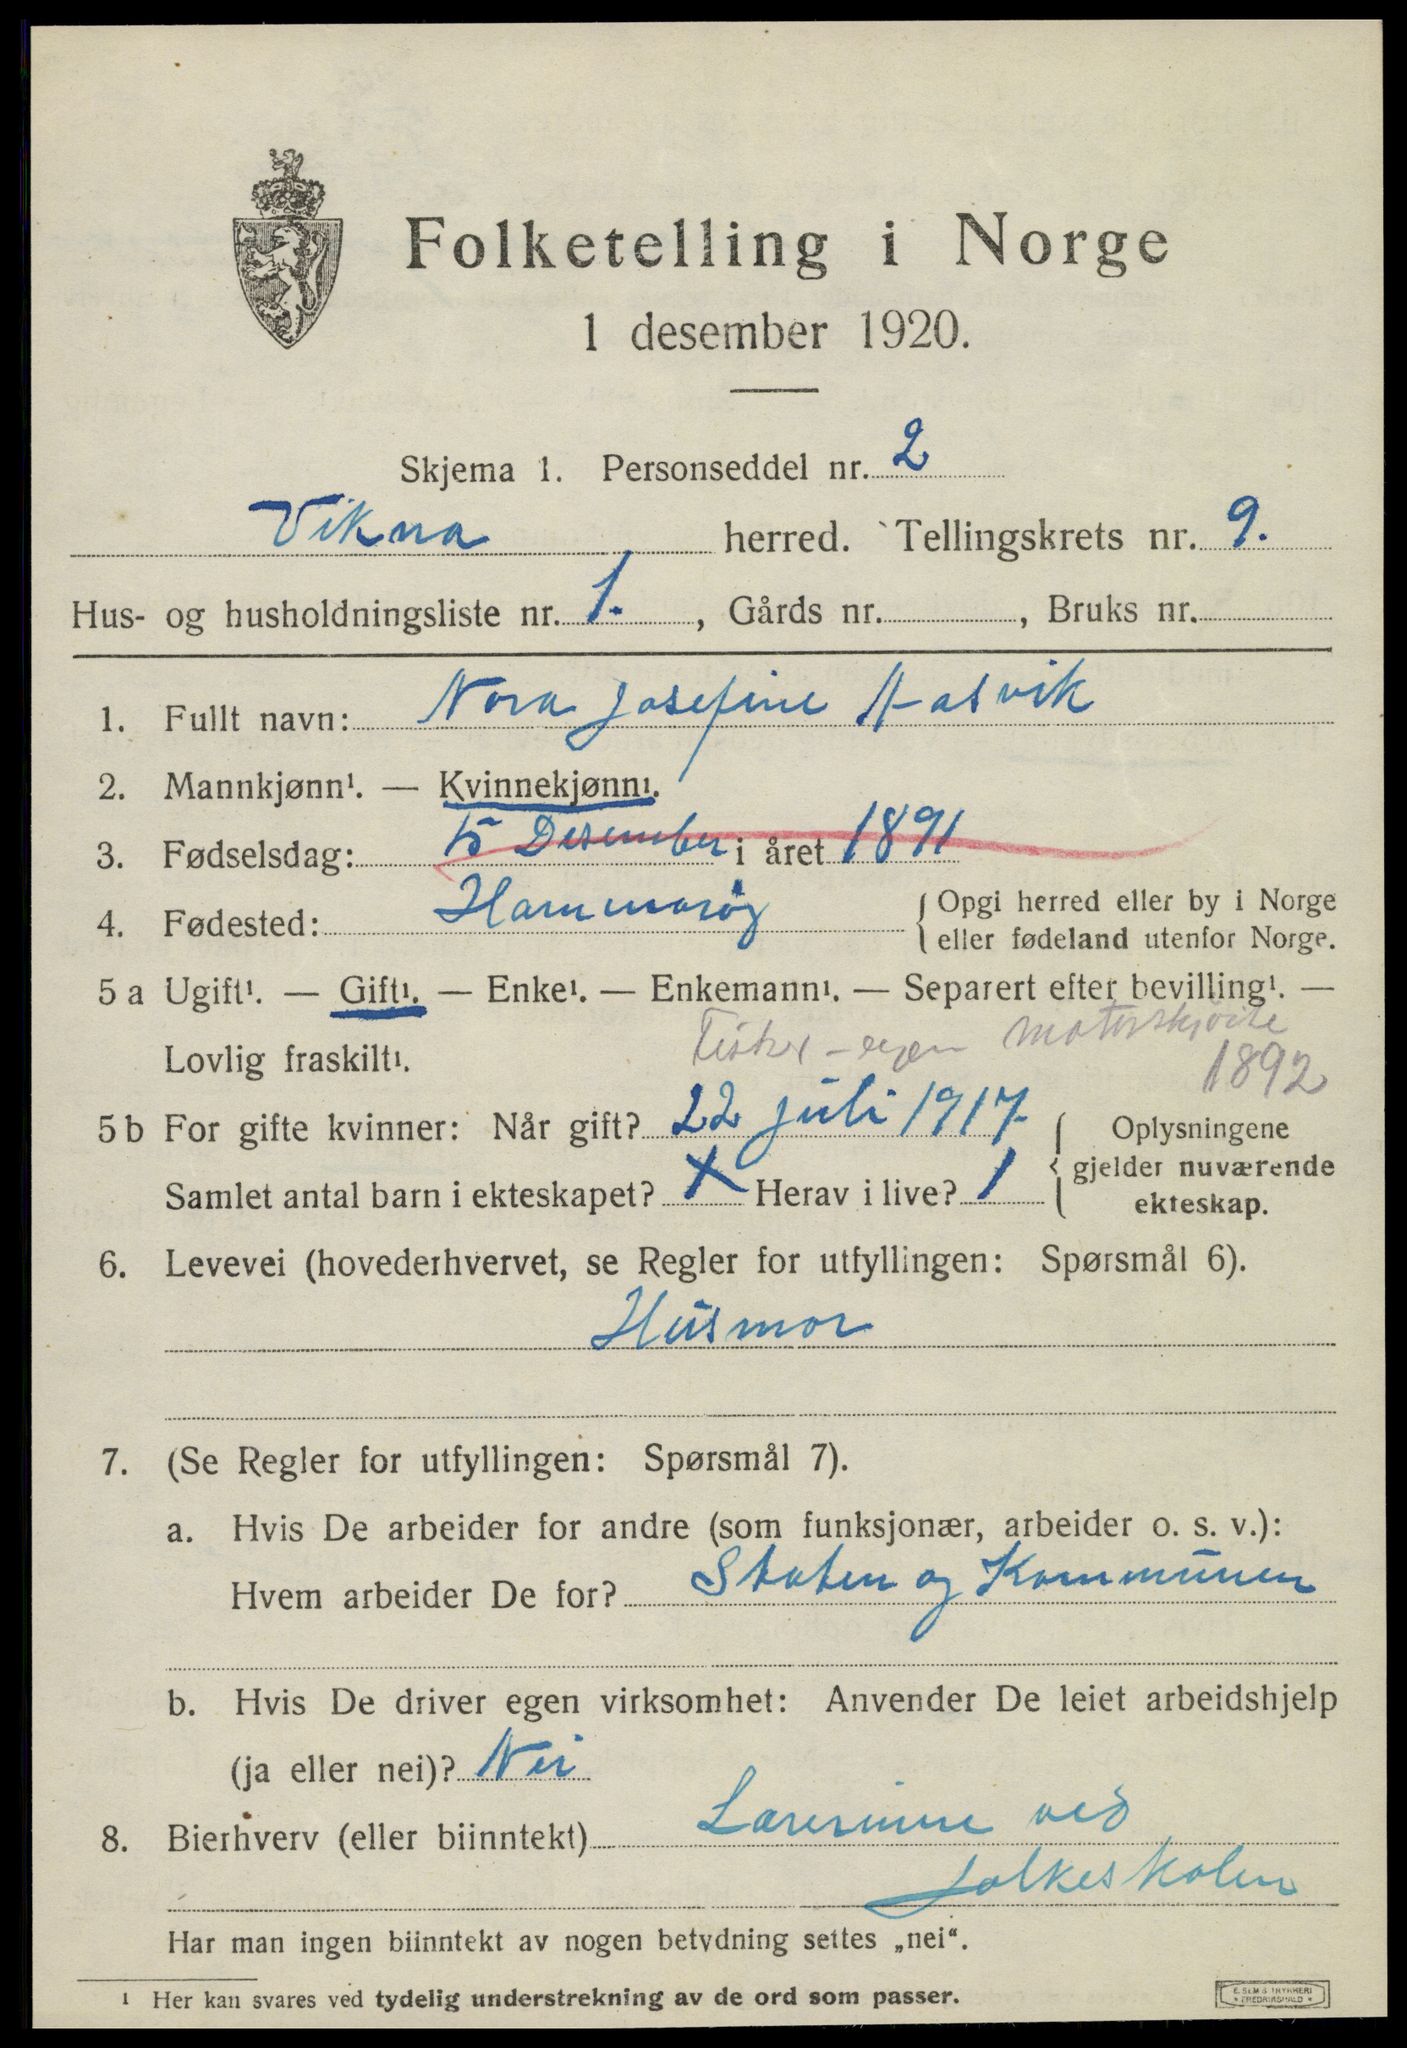 Folketelling i Norge
1 desember 1920.
Skjema 1. Personseddel nr. 2
Vikna herred. Tellingskrets nr. 9.
Hus- og husholdningsliste nr. 1. , Gårds nr. , Bruks nr.
1. Fullt navn: Nora Josefine Hasvik
2. Mannkjønn¹. — Kvinnekjønn¹.
3. Fødselsdag: 15 Desember i året 1891
4. Fødested: Hammarøy {Opgi herred eller by i Norge
eller fødeland utenfor Norge.
5 a Ugift¹. — Gift¹. — Enke¹. — Enkemann¹. — Separert efter bevilling¹. —
Lovlig fraskilt¹. Fisker - egen motorskjøite
1892
5 b For gifte kvinner: Når gift? 22 juli 1917. {Oplysningene
gjelder nuværende
Samlet antal barn i ekteskapet? 1 Herav i live? 1
ekteskap.
6. Levevei (hovederhvervet, se Regler for utfyllingen: Spørsmål 6).
Husmor
7. (Se Regler for utfyllingen: Spørsmål 7).
a. Hvis De arbeider for andre (som funksjonær, arbeider o. s. v.):
Hvem arbeider De for? Staten og Kommunen
b. Hvis De driver egen virksomhet: Anvender De leiet arbeidshjelp
(ja eller nei)? Nei
8. Bierhverv (eller biinntekt) Lærerinne ved
folkeskolen
Har man ingen biinntekt av nogen betydning settes „nei“.
¹ Her kan svares ved tydelig understrekning av de ord som passer.
E. SEM'S TRYKKERI
FREDRIKSHALD